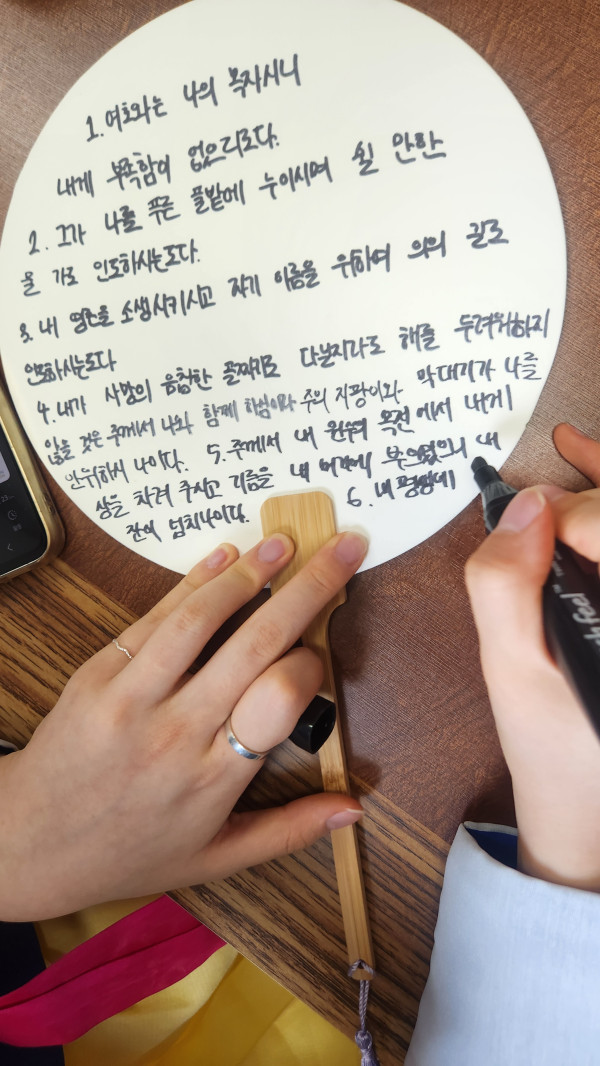 1. 여호와는 나의 목자시니
내게 부족함이 없으리로다.
2. 그가 나를 푸른 풀밭에 누이시며 쉴 만한
물 가로 인도하시는도다.
3. 내 영혼을 소생시키시고 자기 이름을 위하여 의의 길로
인도하시는도다
4. 내가 사망의 음침한 골짜기로 다닐지라도 해를 두려워하지
않을 것은 주께서 나와 함께 하심이라 주의 지팡이와 막대기가 나를
안위하시 나이다. 5. 주께서 내 원수의 목전에서 내게
상을 차려 주시고 기름을 내 머리에 부으셨으니 내
잔이 넘치나이다. 6. 내 평생에
feel